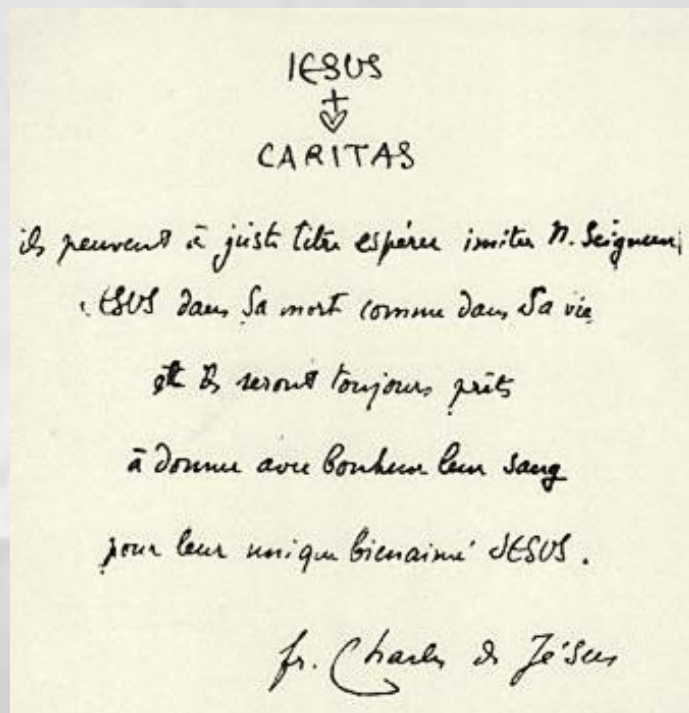 IESUS
CARITAS
ils peuvent à juste titre espérer imiter N. Seigneur
JESUS dans Sa mort comme dans Sa vie
et ils seront toujours prêts
à donner avec bonheur leur sang
pour leur unique bienaimé JESUS.
fr. Charles de Jésus